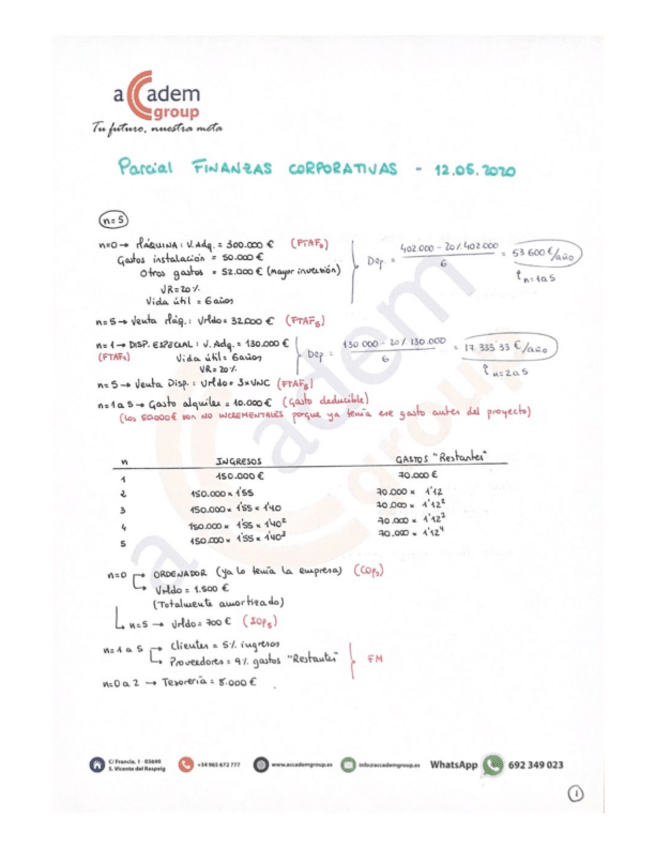 aCCadem
group
Tu futuro, nuestra meta
Parcial FINANZAS CORPORATIVAS - 12.06.2020
n=5
n=0 → MÁQUINA: V.Adq. = 300.000 € (FTAF₀)
Gastos instalación = 50.000 €
Otros gastos = 52.000 € (mayor inversión)
VR=20%
Vida útil = 6 años
Dep. = 402.000 - 20% 402.000 / 6 = 53.600 €/año
n=1 a 5
n=5 → Venta Máq.: Vrldo= 32.000 € (FTAF₅)
n=1 → DISP. ESPECIAL: V. Adq. = 130.000 €
(FTAF₁) Vida útil= 6 años
VR= 20%
Dep = 130.000 - 20% 130.000 / 6 = 17.333'33 €/año
n=2 a 5
n=5 → Venta Disp.: Vrldo= 3×VNC (FTAF₅)
n=1 a 5 → Gasto alquiler = 10.000 € (Gasto deducible)
(Los 50.000€ son NO INCREMENTALES porque ya tenía ese gasto antes del proyecto)
n INGRESOS GASTOS "Restantes"
1 150.000 € 70.000 €
2 150.000 × 1'55 70.000 × 1'12
3 150.000 × 1'55 × 1'40 70.000 × 1'12²
4 150.000 × 1'55 × 1'40² 70.000 × 1'12³
5 150.000 × 1'55 × 1'40³ 70.000 × 1'12⁴
n=0 → ORDENADOR (ya lo tenía la empresa) (COP₀)
→ Vrldo = 1.500 €
(Totalmente amortizado)
→ n=5 → Vrldo = 700 € (IOP₅)
n=1 a 5 → Clientes = 5% ingresos
→ Proveedores = 9% gastos "Restantes"
FM
n=0 a 2 → Tesorería = 8.000 €
C/ Francia, 1 - 03690
S. Vicente del Raspeig
+34 965 672 777
www.accademgroup.es
info@accademgroup.es
WhatsApp 692 349 023
1